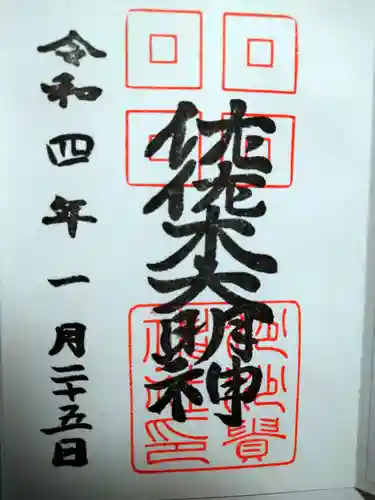 佐佐木大明神
令和四年一月二十五日